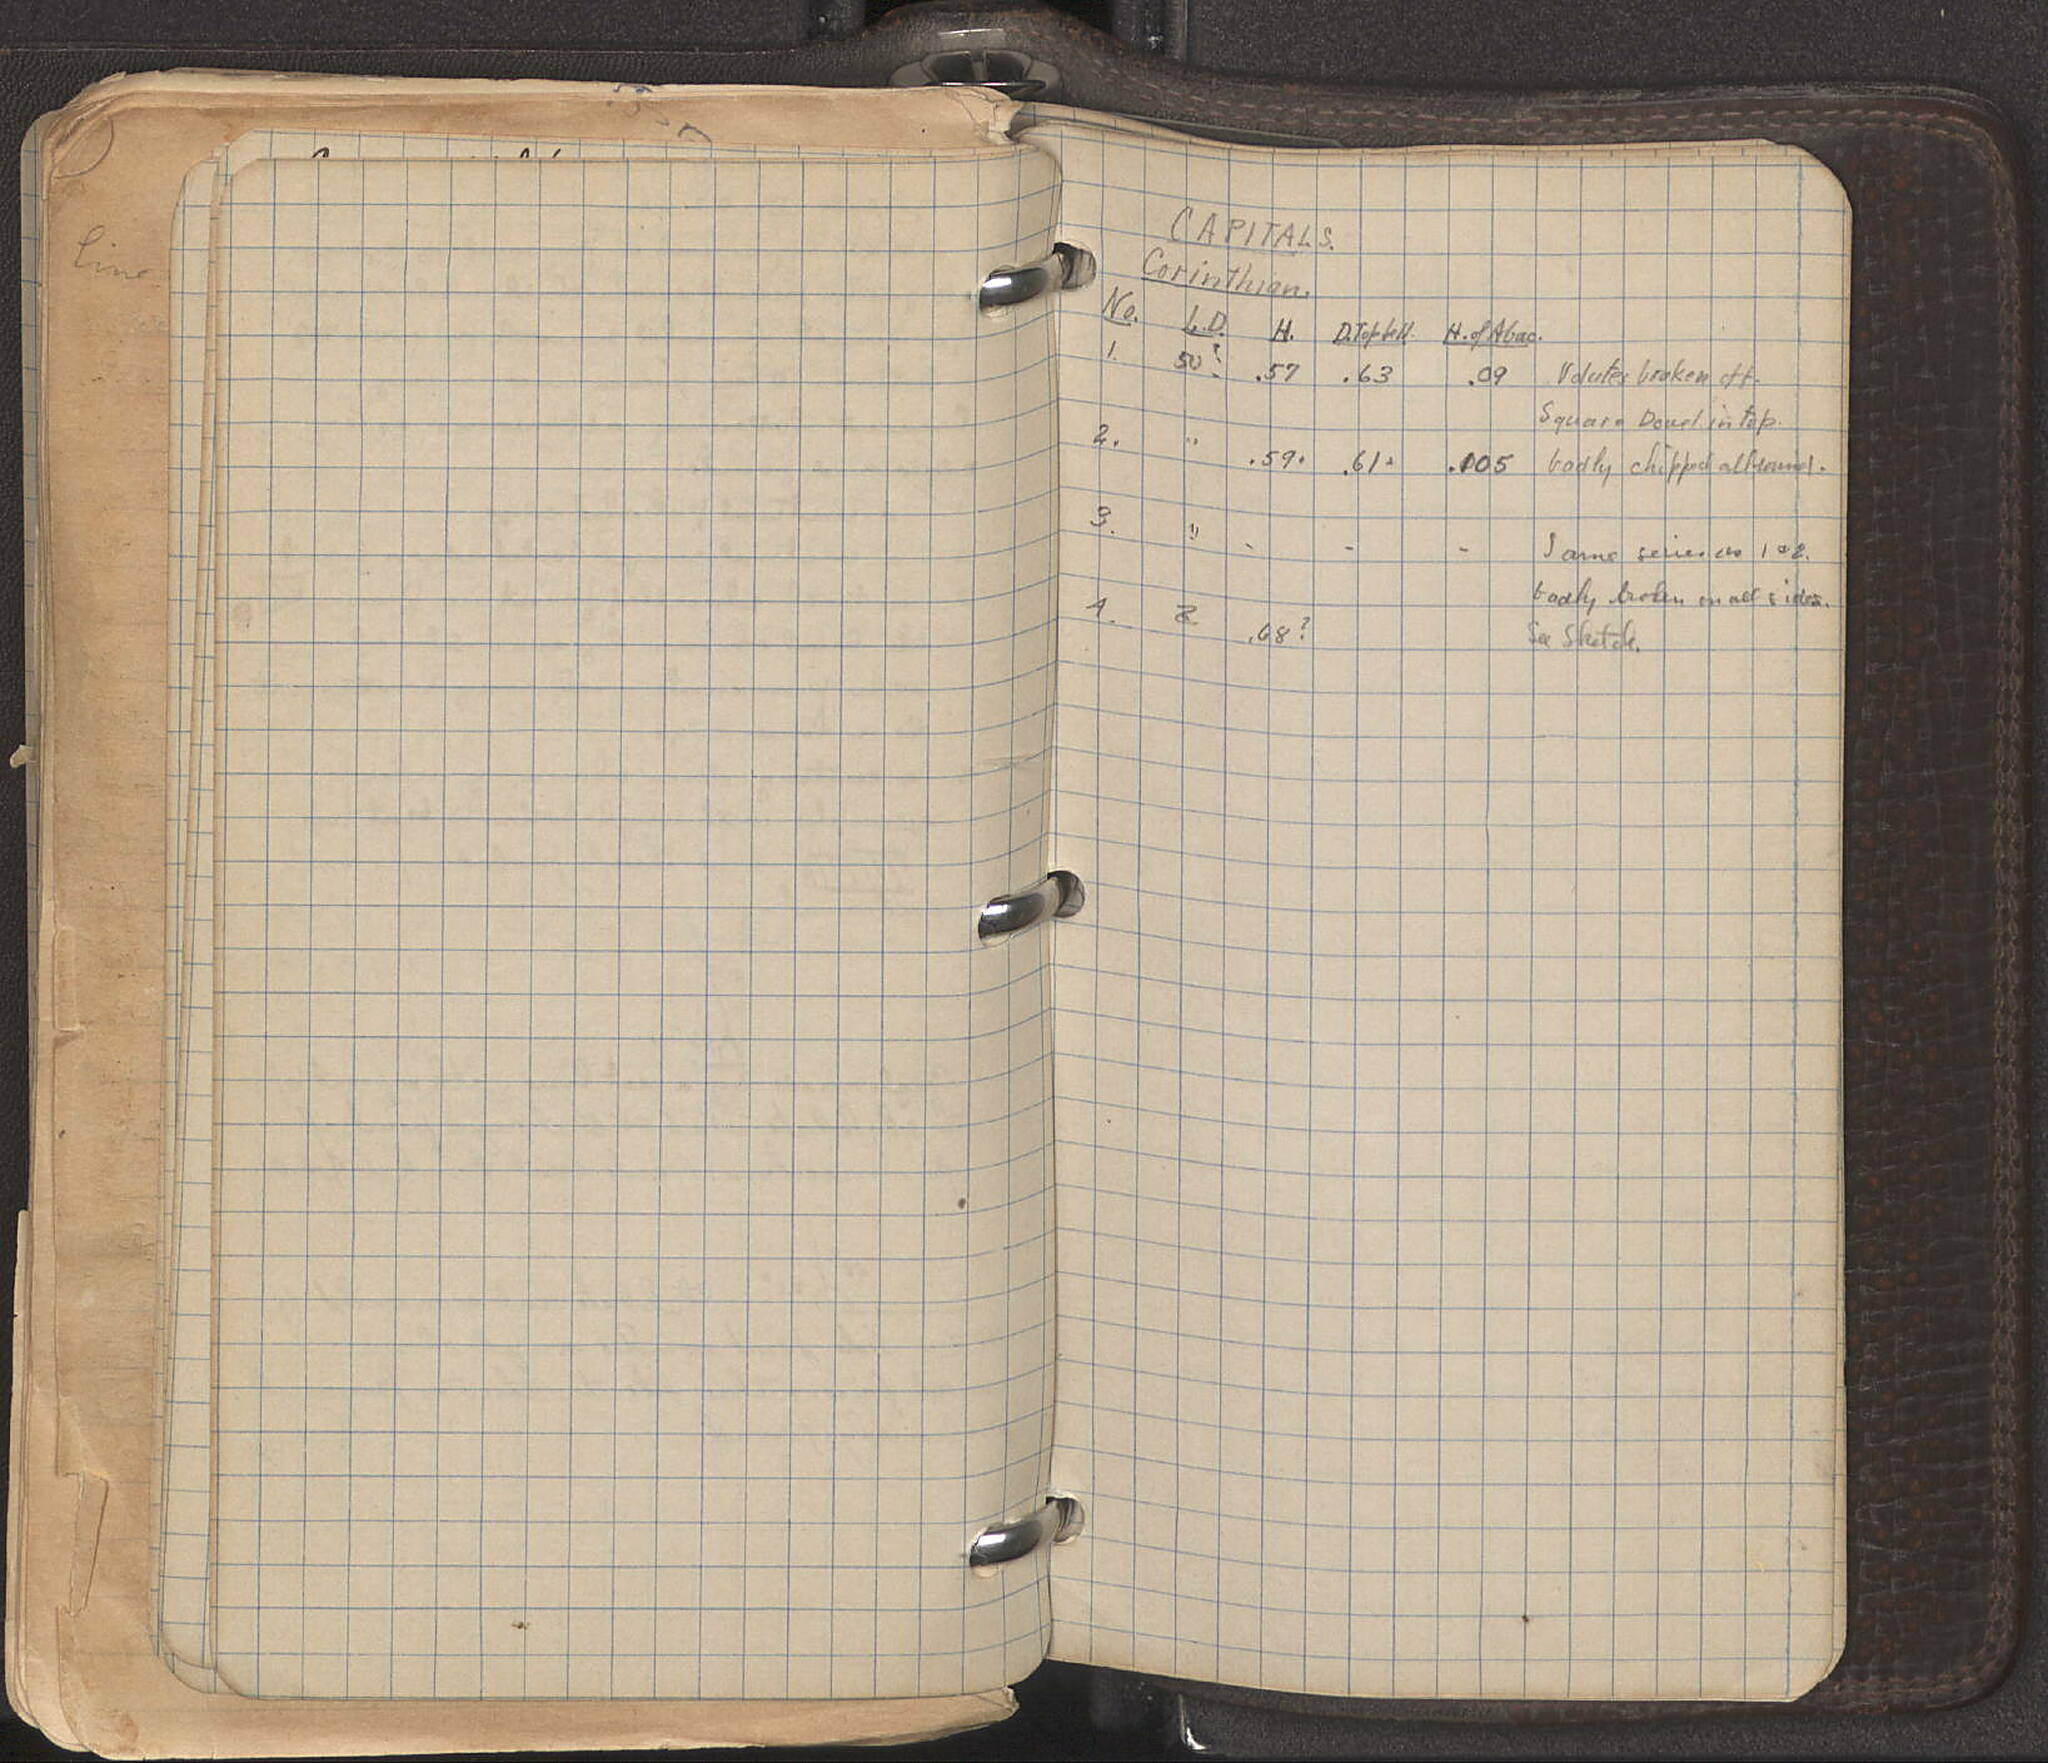 Line
CAPITALS.
Corinthian.
No. L.D. H. D.Top bell. H. of Abac.
1. 50? .57 .63 .09 Volutes broken off.
Square Dowel in top.
2. " .59+ .61+ .005 badly chipped all round.
3. " - - - Same series as 1 & 2.
badly broken on all sides.
4. .68? See Sketch.